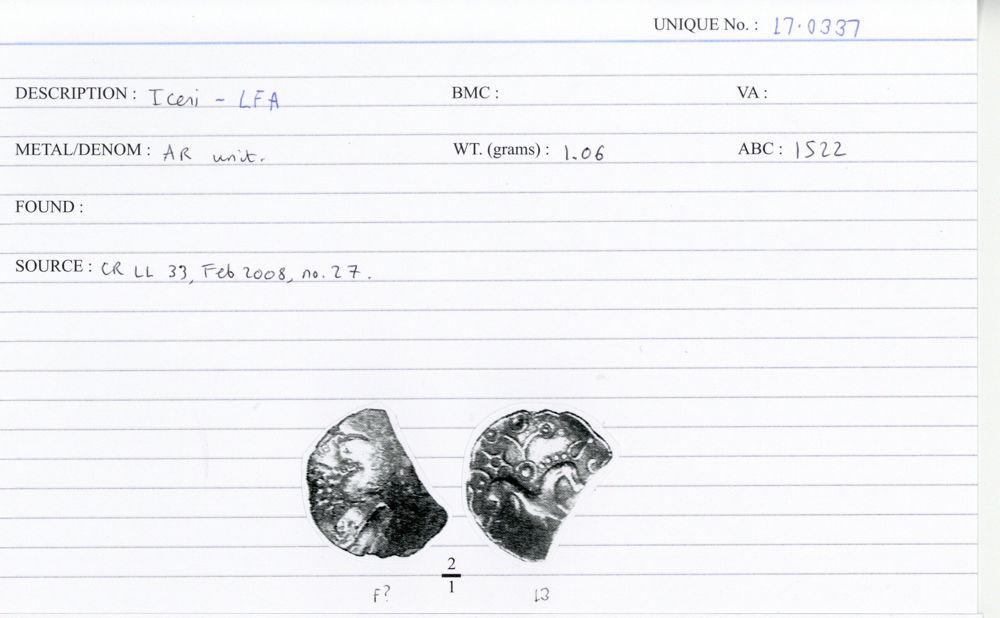 UNIQUE No. : 17.0337
DESCRIPTION : Iceni - LFA BMC : VA :
METAL/DENOM : AR unit. WT. (grams) : 1.06 ABC : 1522
FOUND :
SOURCE : CR LL 33, Feb 2008, no. 27.
2
1
F? 13